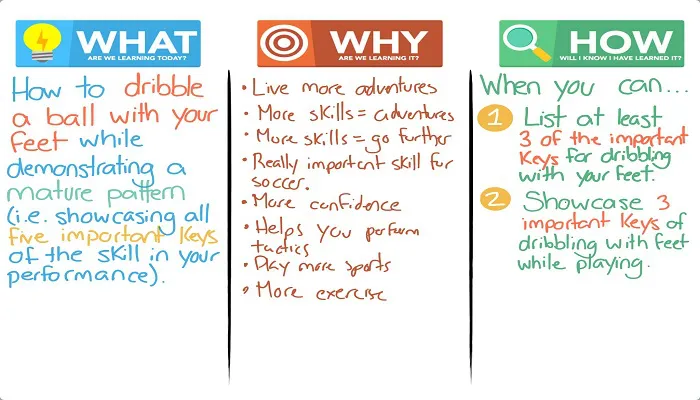 WHAT
ARE WE LEARNING TODAY?
How to dribble
a ball with your
feet while
demonstrating a
mature pattern
(i.e. showcasing all
five important keys
of the skill in your
performance).
WHY
ARE WE LEARNING IT?
• Live more adventures
• More skills = adventures
• More skills = go further
• Really important skill for
soccer.
• More confidence
• Helps you perform
tactics
• Play more sports
• More exercise
HOW
WILL I KNOW I HAVE LEARNED IT?
When you can...
1 List at least
3 of the important
Keys for dribbling
with your feet.
2 Showcase 3
important Keys of
dribbling with feet
while playing.